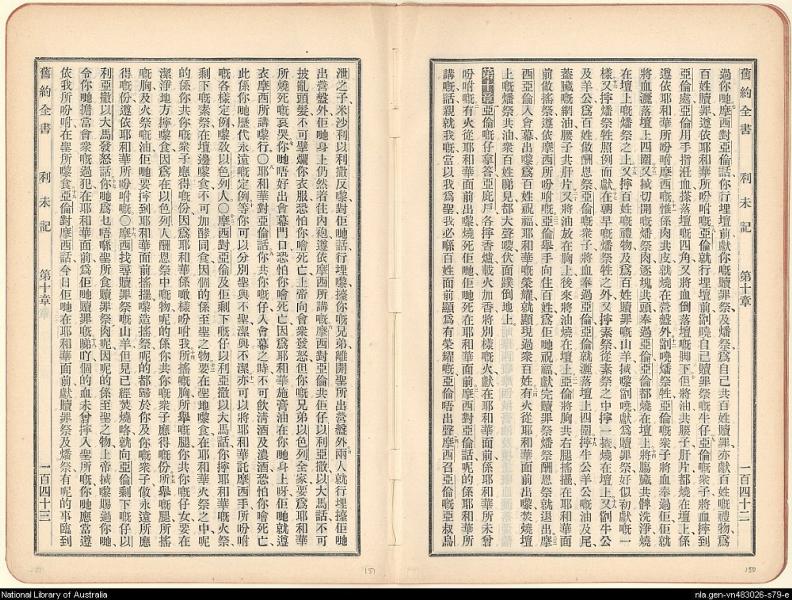 舊約全書 利未記 第十章 一百四十二
過你哋摩西對亞倫話你行埋壇前獻你嘅贖罪祭及燔祭爲自己共百姓贖罪亦獻百姓嘅禮物爲
百姓贖罪遵依耶和華所吩咐嘅亞倫就行埋壇前劏嘵自己贖罪祭嘅牛仔亞倫嘅衆子將血擰到
亞倫處亞倫用手指沍血搽落壇嘅四角又將血倒落壇嘅脚下但將油共腰子肝片都燒在壇上係
遵依耶和華所吩咐摩西嘅惟係肉共皮就燒在營盤外劏嘵燔祭牲亞倫嘅衆子將血奉過亞倫佢就
將血灑落壇上四圍又將切開嘅燔祭肉逐塊共頭奉過亞倫亞倫都燒在壇上將腸臟共髀洗淨燒
在壇上嘅燔祭之上又擰百姓嘅禮物及爲百姓贖罪嘅山羊擰嚟劏嘵獻爲贖罪祭好似初獻嘅一
樣又擰燔祭牲照例而獻在朝早嘅燔祭牲之外又擰素祭從素祭之中擰一揸燒在壇上又劏牛公
及羊公爲百姓做酬恩祭亞倫嘅衆子將血奉過亞倫亞倫就灑落壇上四圍擰牛公羊公嘅油及尾
蓋臟嘅網油腰子共肝片又將油放在胸上後來將油燒在壇上亞倫將胸共右腿搖擺在耶和華面
前做搖祭遵依摩西所吩咐嘅亞倫舉手向住百姓爲佢哋祝福獻完贖罪祭燔祭酬恩祭就退出摩
西亞倫入會幕出嚟爲百姓祝福耶和華嘅榮耀就顯現過衆百姓有火從耶和華面前出嚟焚燒壇
上嘅燔祭共油衆百姓睇見都大聲嘵伏面蹼倒地上
第十章亞倫嘅仔拿答亞庇戶各擰香爐載火加香將別樣嘅火獻在耶和華面前係耶和華所未曾
吩咐嘅有火從耶和華面前出嚟燒死佢哋佢哋死在耶和華面前摩西對亞倫話呢啲係耶和華所
講嘅話親就我嘅當以我爲聖我必喺百姓面前顯爲有榮耀嘅亞倫唔出聲摩西召亞倫嘅亞叔烏
洩之子米沙利以利撒反嚟對佢哋話行埋嚟擡你嘅兄弟離開聖所出營盤外兩人就行埋擡佢哋
出營盤外佢哋身上仍然着住內袍遵依摩西所講嘅摩西對亞倫共佢仔以利亞撒以大馬話不可
披亂頭髮不可擘爛你衣服恐怕你嗆死亡上帝向會衆發怒但你嘅兄弟以色列全家要爲耶和華
所燒死嘅哀哭你哋唔好出會幕門口恐怕你嗆死亡因爲耶和華施膏油在你哋身上呀佢哋就遵
衣摩西所講嚟行〇耶和華對亞倫話你共你嘅仔入會幕之時不可飲淡酒及濃酒恐怕你嗆死亡
此係你哋歷代永遠嘅定例等你可以分別聖與不聖潔與不潔亦可以將耶和華託摩西手所吩咐
嘅各樣定例嚟敎以色列人〇摩西對亞倫及佢剩下嘅仔以利亞撒以大馬話你擰耶和華嘅火祭
剩下嘅素祭在壇邊嚟食不可加酵同食因個的係至聖之物要在聖地嚟食在耶和華火祭之中呢
的係你共你嘅衆子應得嘅份因爲耶和華係噉樣吩咐我所搖嘅胸所舉嘅腿你共你嘅仔女要在
潔淨地方擰嚟食因爲在以色列人酬恩祭中嘅物呢的係你共你嘅衆子應得嘅份所舉嘅腿所搖
嘅胸及火祭嘅油佢哋要擰到耶和華面前搖擺嚟造搖祭呢的都歸於你及你嘅衆子做永遠所應
得嘅份遵依耶和華所吩咐嘅〇摩西找尋贖罪祭嘅山羊但見已經焚燒咯就向亞倫剩下嘅仔以
利亞撒以大馬發怒話你哋爲乜唔喺聖所食贖罪祭肉呢因呢的係至聖之物上帝拭嚟賜過你哋
令你哋擔當會衆嘅過犯在耶和華面前爲佢哋贖罪嘅睇吖個的血未曾擰入聖所嘅你哋應當遵
依我所吩咐在聖所嚟食亞倫對摩西話今日佢哋在耶和華面前獻贖罪祭及燔祭有呢的事臨到
舊約全書 利未記 第十章 一百四十三
151
150
National Library of Australia
nla.gen-vn483026-s79-e